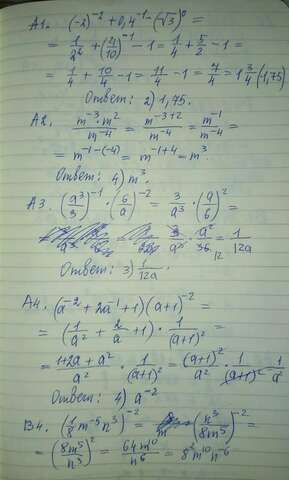 A1. (-2)⁻² + 0,4⁻¹ - (√3)⁰ =
= 1/2² + (4/10)⁻¹ - 1 = 1/4 + 5/2 - 1 =
= 1/4 + 10/4 - 1 = 11/4 - 1 = 7/4 = 1 3/4 (1,75)
Ответ: 2) 1,75.
A2. (m⁻³ · m²)/m⁻⁴ = m⁻³⁺²/m⁻⁴ = m⁻¹/m⁻⁴
= m⁻¹⁻⁽⁻⁴⁾ = m⁻¹⁺⁴ = m³
Ответ: 4) m³.
A3. (a³/3)⁻¹ · (6/a)⁻² = 3/a³ · (a/6)² =
= 3/a³ · a²/36 12 = 1/12a
Ответ: 3) 1/12a.
A4. (a⁻² + 2a⁻¹ + 1)(a+1)⁻² =
= (1/a² + 2/a + 1) · 1/(a+1)² =
= (1+2a+a²)/a² · 1/(a+1)² = (a+1)²/a² · 1/(a+1)² = 1/a²
Ответ: 4) a⁻²
B4. (1/8 m⁻⁵ n³)⁻² = (n³/8m⁵)⁻² =
= (8m⁵/n³)² = 64m¹⁰/n⁶ = 8²m¹⁰n⁻⁶